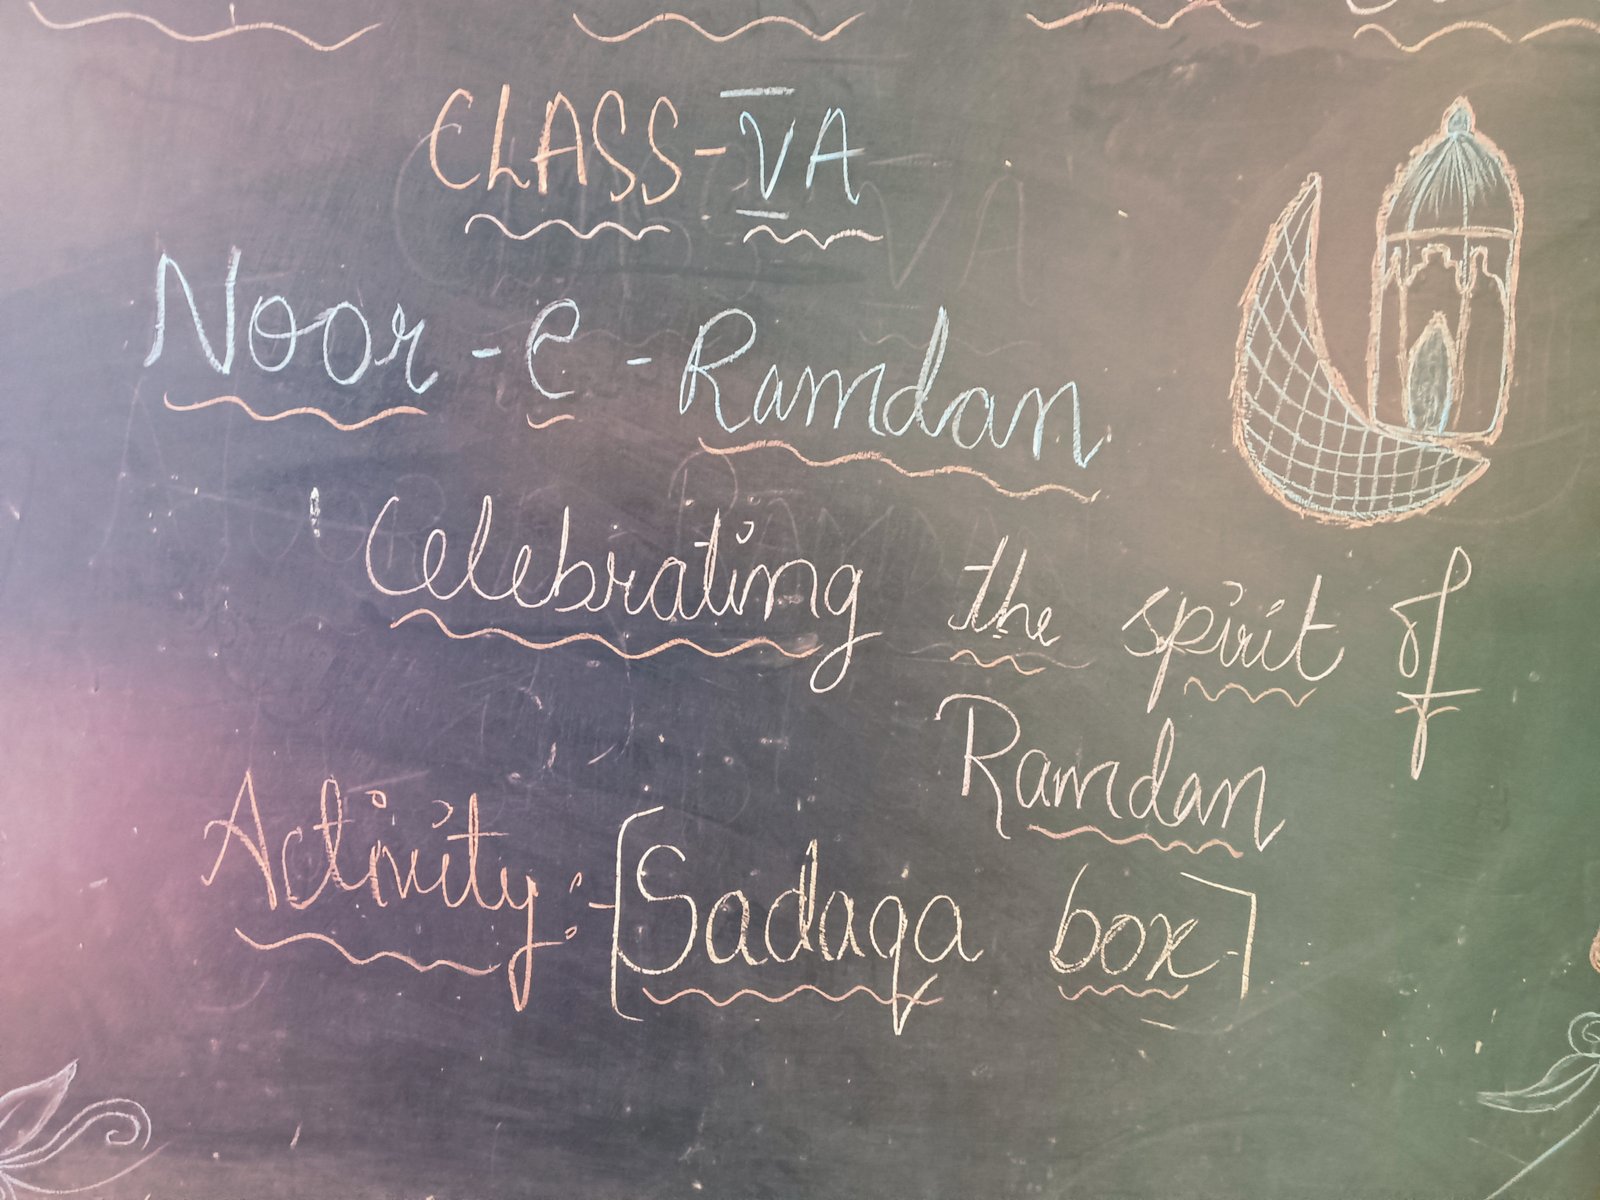 CLASS-VA
Noor-e-Ramdan
'Celebrating the spirit of
Ramdan
Activity:-[Sadaqa box]